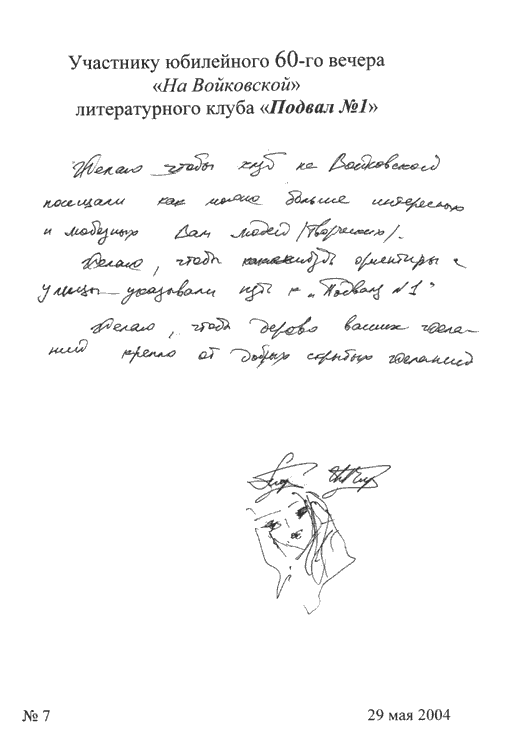 Участнику юбилейного 60-го вечера
«На Войковской»
литературного клуба «Подвал №1»
Желаю чтобы клуб на Войковской
посещали как можно больше интересных
и любезных Вам людей /творческих/.
Желаю, чтобы ориентиры с
улицы указывали путь к „Подвалу №1"
Желаю, чтоб дерево ваших жела-
ний крепло от добрых желаний
№ 7
29 мая 2004